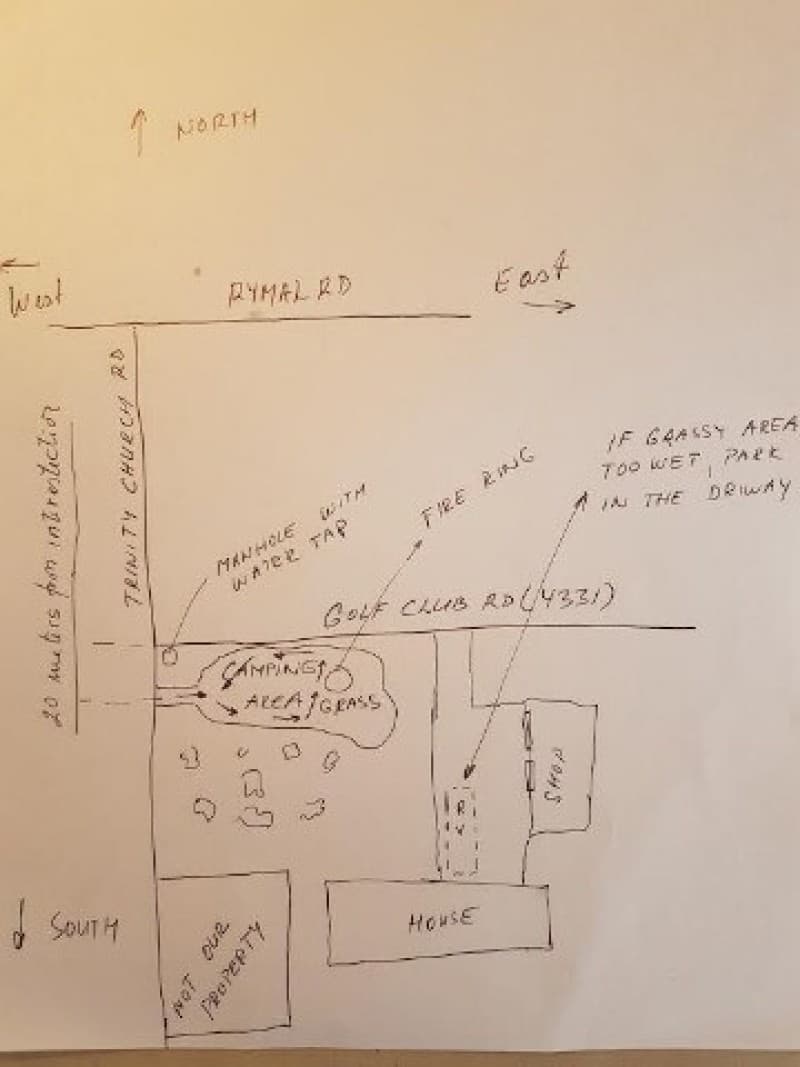 NORTH
West
RYMAL RD
East
TRINITY CHURCH RD
20 meters from introstection
MANHOLE WITH
WATER TAP
FIRE RING
IF GRASSY AREA
TOO WET, PARK
IN THE DRIWAY
GOLF CLUB RD (4331)
CAMPING
AREA GRASS
RV
SHOP
SOUTH
NOT OUR
PROPERTY
HOUSE